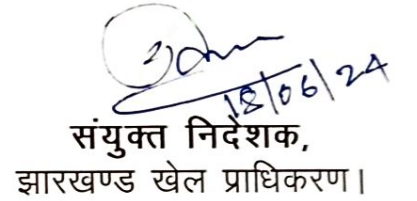 18/06/24
संयुक्त निदेशक,
झारखण्ड खेल प्राधिकरण।